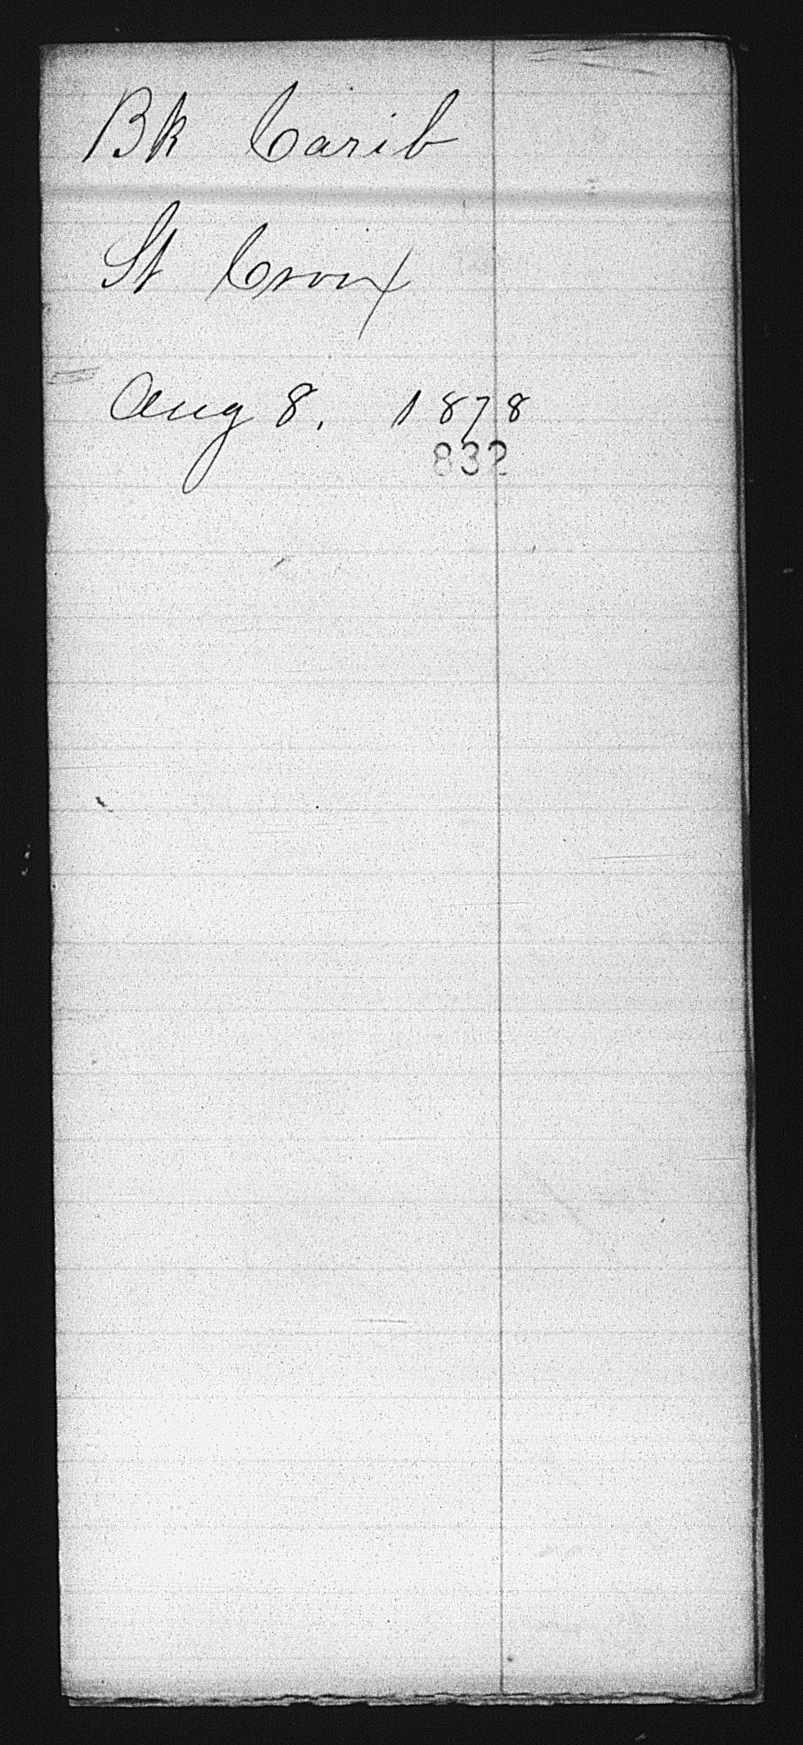 Bk Carib
St Croix
Aug 8, 1878
832